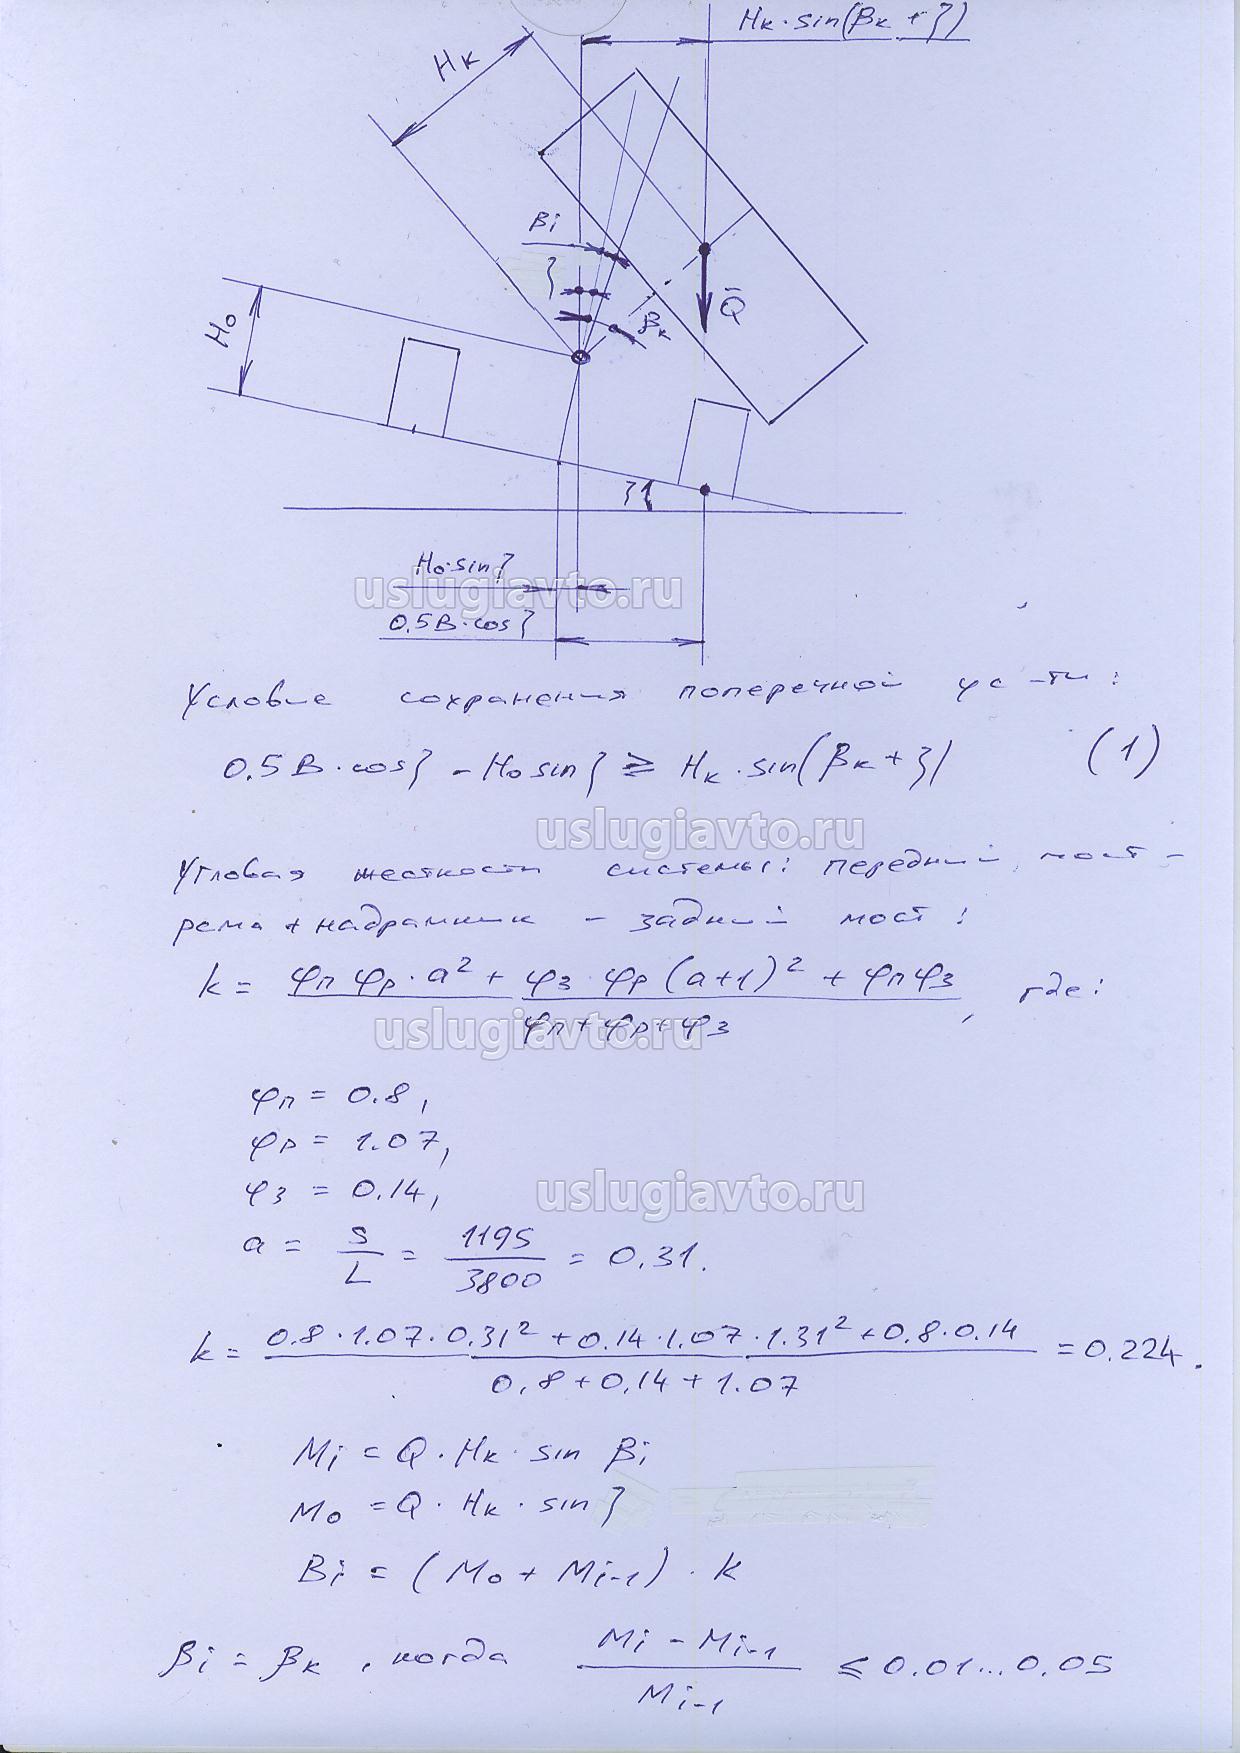 Hк·sin(βк+ξ)
Hк
βi
ξ
Q̄
βк
H₀
ξ
H₀·sinξ
uslugiavto.ru
0.5B·cosξ
Условие сохранения поперечной ус-ти:
0.5B·cosξ - H₀sinξ ≥ Hк·sin(βк+ξ) (1)
uslugiavto.ru
Угловая жесткость системы: передний мост -
рама + надрамник - задний мост:
k = (φп φр·a² + φз·φр(a+1)² + φпφз) / (φп+φр+φз), где:
uslugiavto.ru
φп = 0.8,
φр = 1.07,
φз = 0.14,
uslugiavto.ru
a = S/L = 1195/3800 = 0.31.
k = (0.8·1.07·0.31² + 0.14·1.07·1.31² + 0.8·0.14) / (0.8+0.14+1.07) = 0.224.
Mi = Q·Hк·sin βi
M₀ = Q·Hк·sinξ
Bi = (M₀ + Mi-1)·k
βi = βк, когда (Mi - Mi-1) / Mi-1 ≤ 0.01...0.05